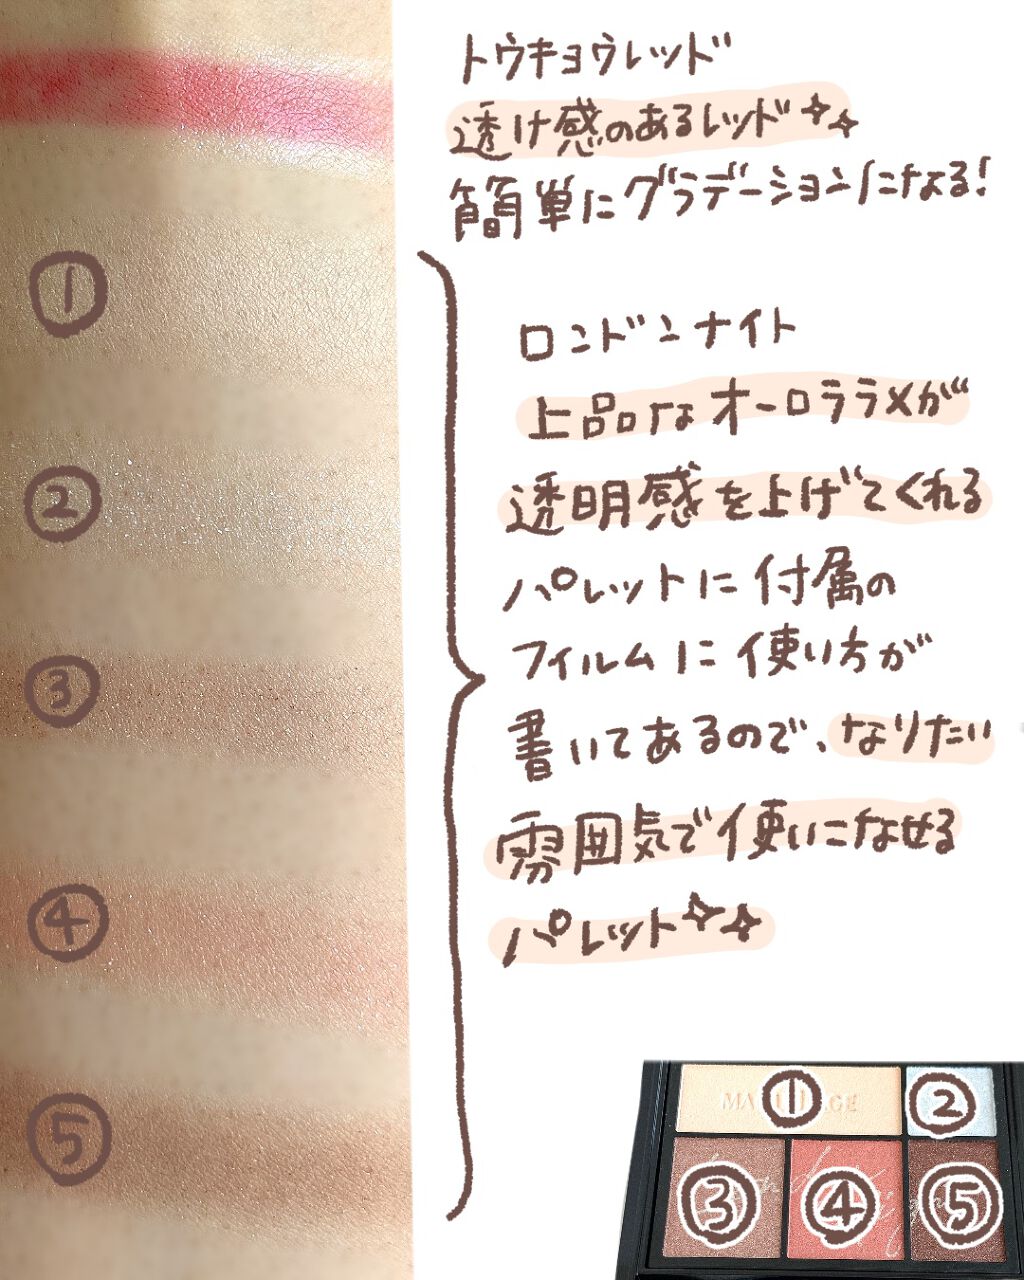 トウキョウレッド
透け感のあるレッド
簡単にグラデーションになる!
ロンドンナイト
上品なオーロララメが
透明感を上げてくれる
パレットに付属の
フィルムに使い方が
書いてあるので、なりたい
雰囲気で使いこなせる
パレット
①
②
③
④
⑤
① ②
③ ④ ⑤